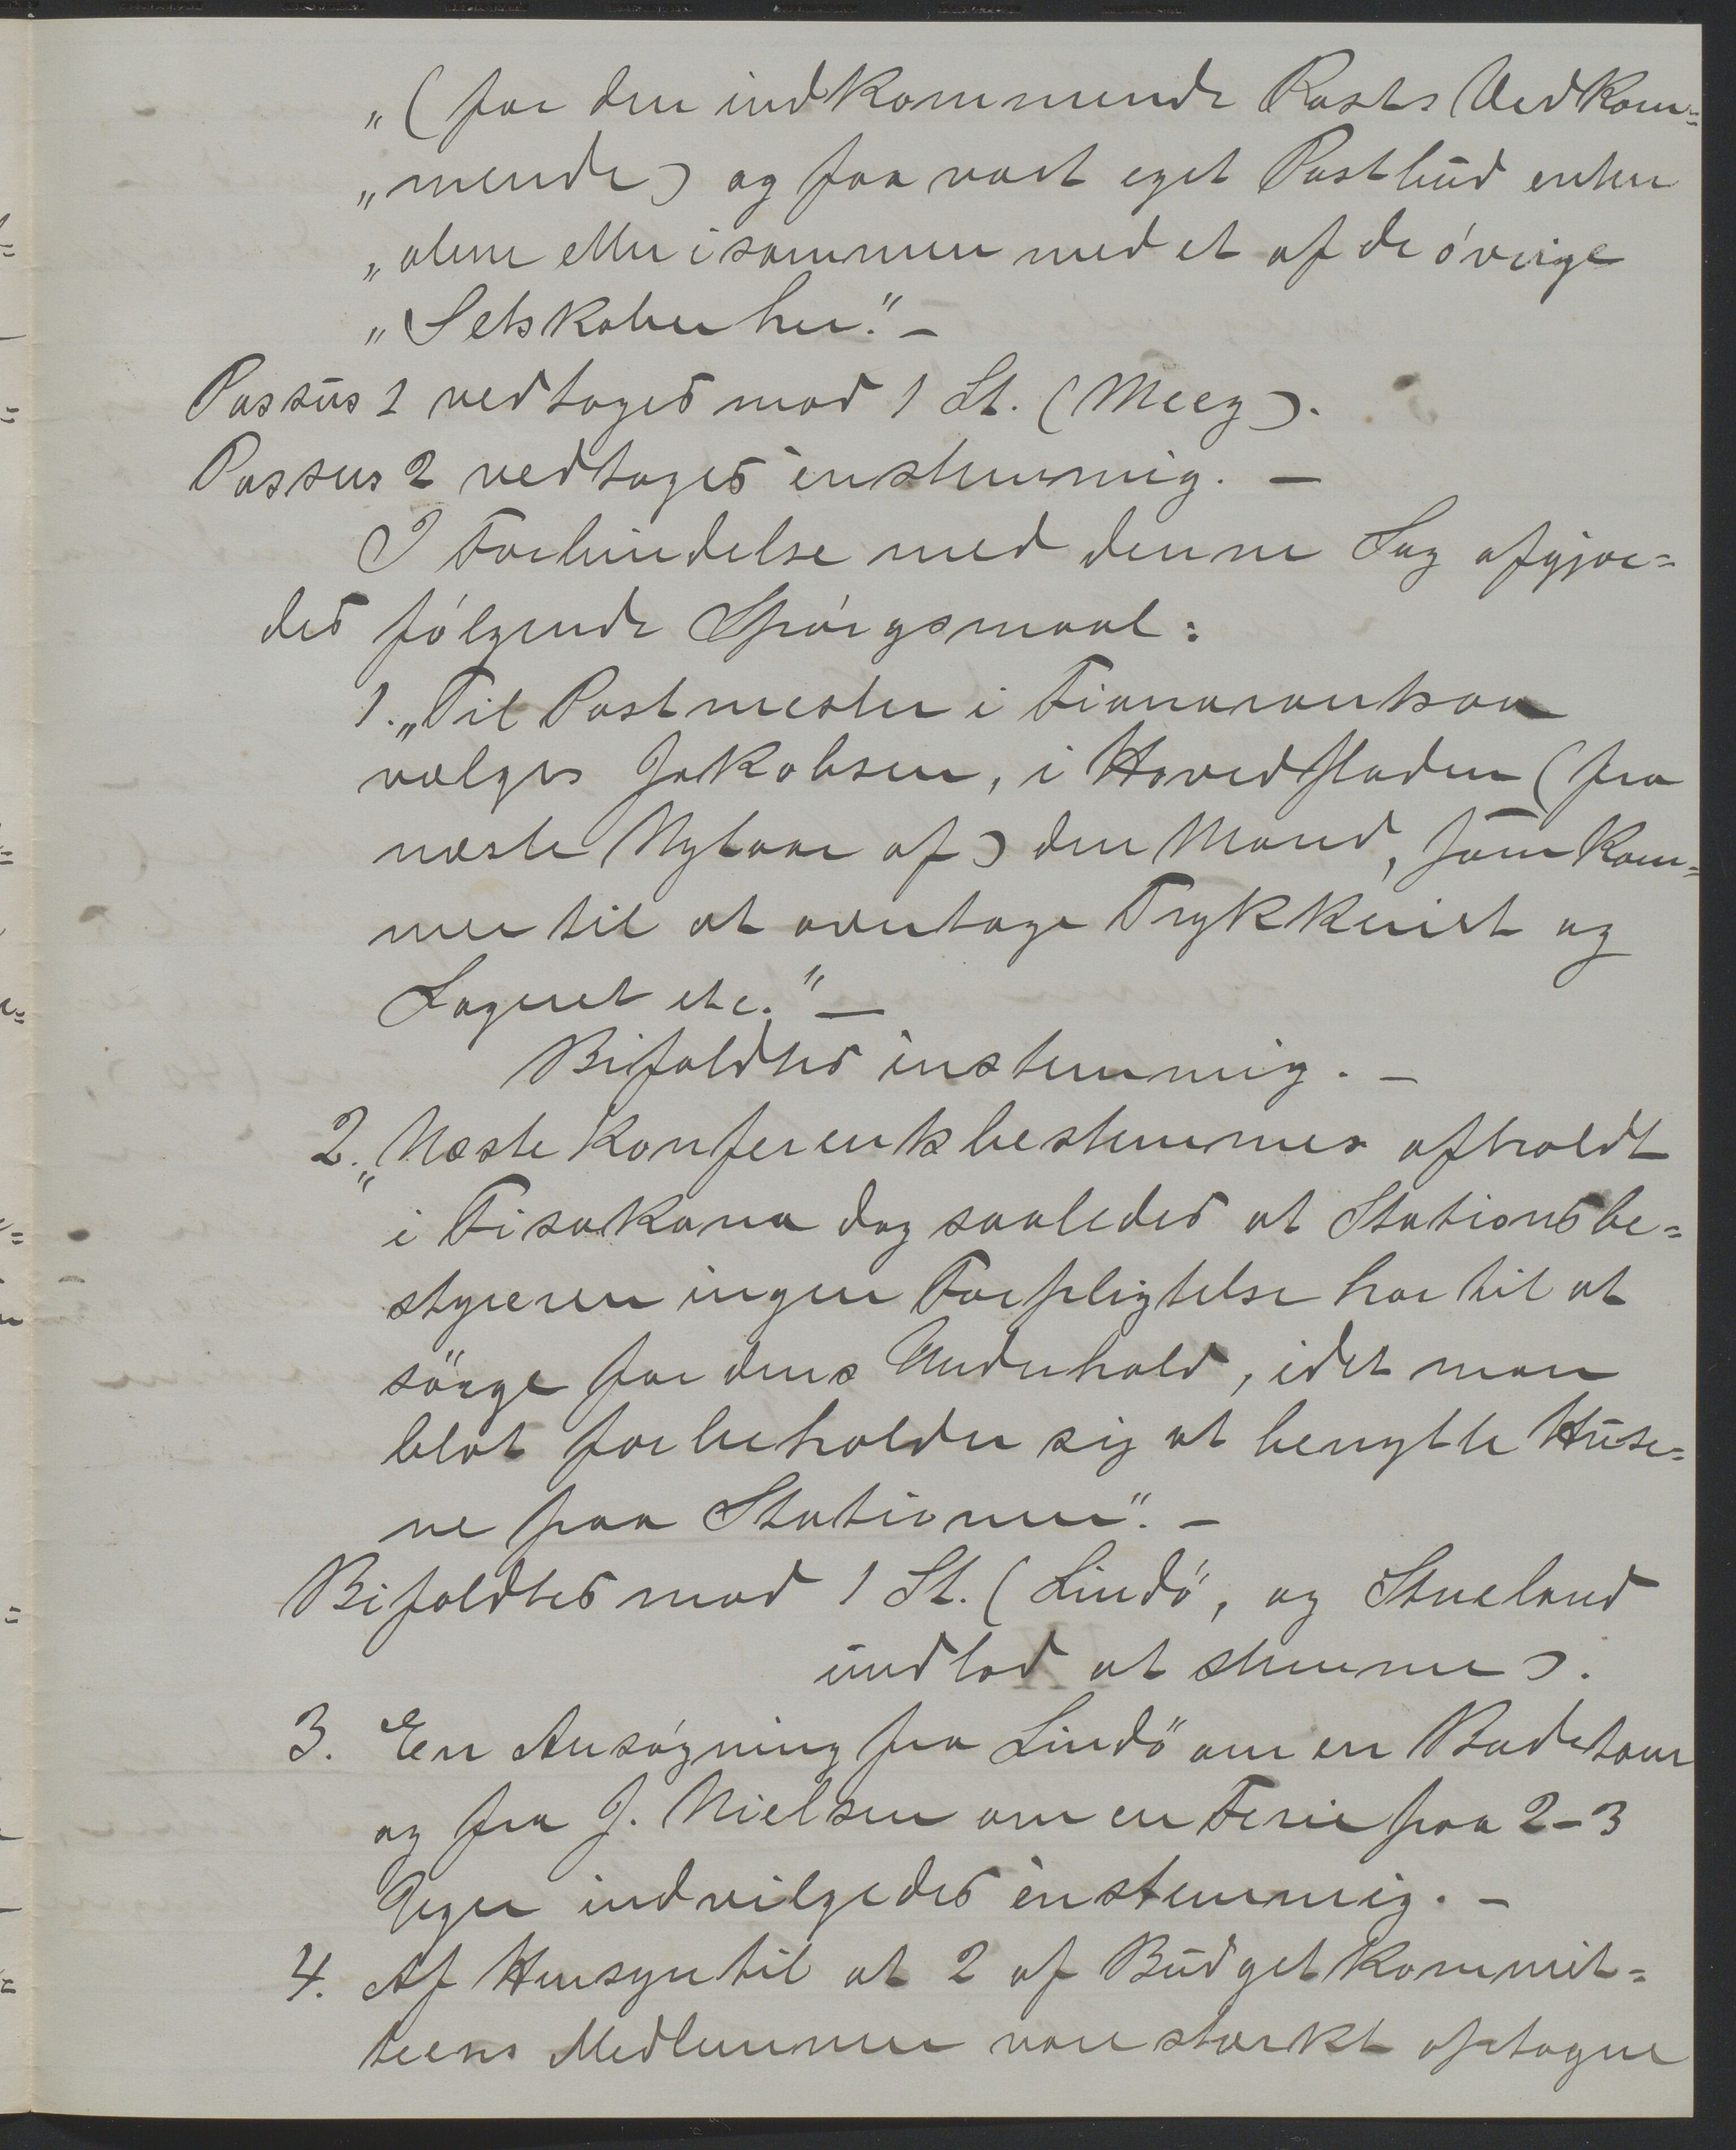 „(for den indkommende Posts Vedkom=
„mende) og faa vort eget Postbud enten
„alene eller isammen med et af de óvrige
„Selskaber her." –
Passus 1 vedtoges mod 1 St. (Meeg).
Passus 2 vedtoges enstemmig. –
I Forbindelse med denne Sag afgjor=
des fólgende Spórgsmaal:
1. „Til Postmester i Fianarantsoa
vælges Jakobsen, i Hovedstaden (fra
næste Nytaar af) den Mand, som kom=
mer til at overtage Trykkeriet og
Lageret etc." –
Bifaldtes enstemmig. –
2. „Næste Konferents bestemmes afholdt
i Fisakana dog saaledes at Stationsbe=
styreren ingen Forpligtelse har til at
sörge for dens Underhold, idet man
blot forbeholder sig at benytte Huse=
ne paa Stationen". –
Bifaldtes mod 1 St. (Lindö, og Stueland
undlod at stemme).
3. En Ansógning fra Lindö om en Badetour
og fra J. Nielsen om en Ferie paa 2–3
Uger indvilgedes enstemmig. –
4. Af Hensyn til at 2 af Budgetkommit=
teens Medlemmer vare stærkt optagne